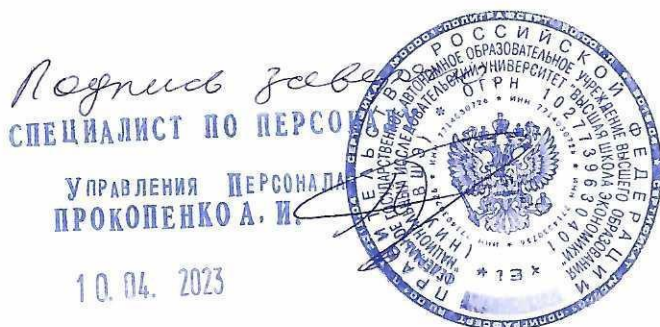 Подпись заверяю
СПЕЦИАЛИСТ ПО ПЕРСОНАЛУ
УПРАВЛЕНИЯ ПЕРСОНАЛА
ПРОКОПЕНКО А. И.
10. 04. 2023
ПРАВИТЕЛЬСТВО РОССИЙСКОЙ ФЕДЕРАЦИИ
ФЕДЕРАЛЬНОЕ ГОСУДАРСТВЕННОЕ АВТОНОМНОЕ ОБРАЗОВАТЕЛЬНОЕ УЧРЕЖДЕНИЕ ВЫСШЕГО ОБРАЗОВАНИЯ
"НАЦИОНАЛЬНЫЙ ИССЛЕДОВАТЕЛЬСКИЙ УНИВЕРСИТЕТ "ВЫСШАЯ ШКОЛА ЭКОНОМИКИ"
(НИУ ВШЭ) * ОГРН 1027739630401
* ИНН 7714030726 * ИНН 7714030726
* 13 *